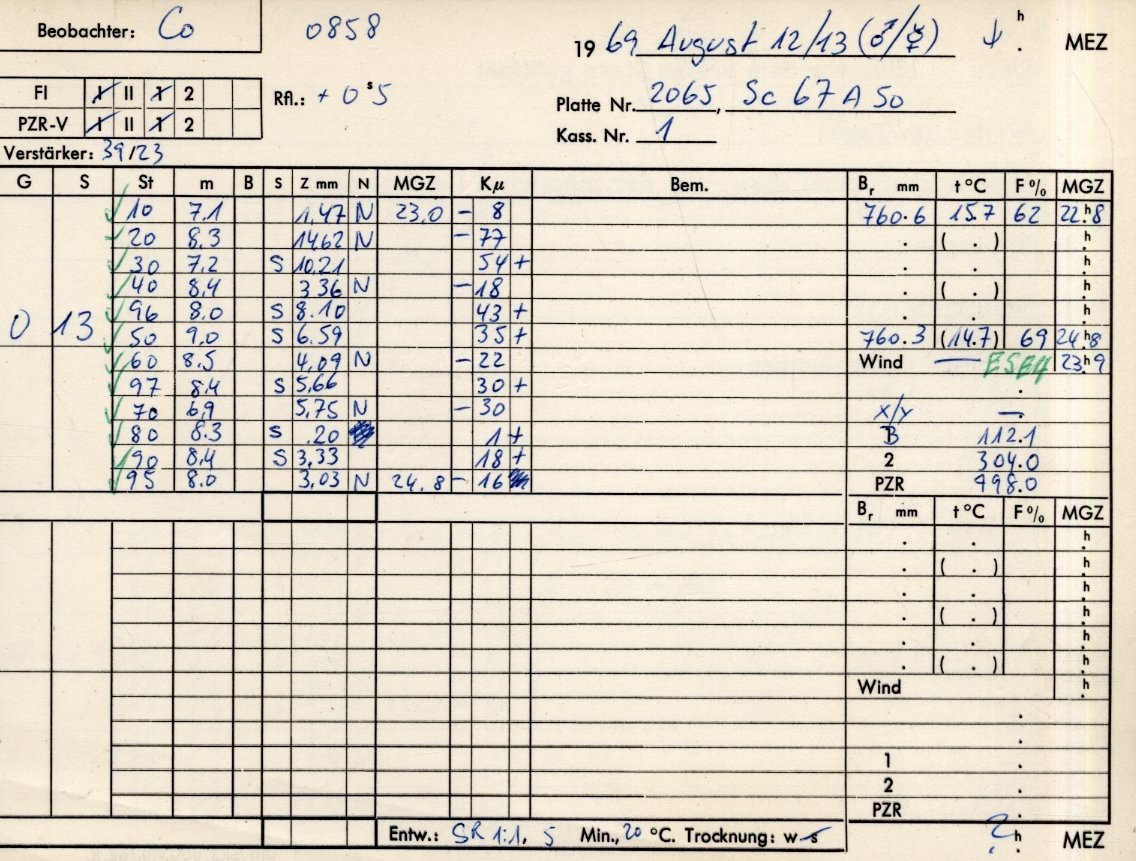 Beobachter: Co 0858 1969 August 12/13 (♂/☿) ↓ h . MEZ
FI I II 1 2 Rfl.: + 0 s 5 Platte Nr. 2065, Sc 67 A 50
PZR-V I II 1 2 Kass. Nr. 1
Verstärker: 39/23
G S St m B S Z mm N MGZ Kμ Bem. Br mm t °C F % MGZ
10 7.1 1.47 N 23.0 - 8 760.6 15.7 62 22.h8
20 8.3 14.62 N - 77 . ( . ) .h
30 7.2 S 10.21 54 + . . .h
40 8.4 3.36 N - 18 . ( . ) .h
96 8.0 S 8.10 43 + . . .h
0 13 50 9.0 S 6.59 35 + 760.3 (14.7) 69 24.h8
60 8.5 4.09 N - 22 Wind — ESE4 23.h9
97 8.4 S 5.66 30 + .
70 6.9 5.75 N - 30 x/y —.
80 8.3 S .20 1 + 112.1
90 8.4 S 3.33 18 + 2 304.0
95 8.0 3.03 N 24.8 - 16 PZR 498.0
Br mm t °C F % MGZ
. . .h
. ( . ) .h
. . .h
. ( . ) .h
. . .h
. ( . ) .h
Wind .h
.
.
1 .
2 .
PZR .
Entw.: SR 1:1, 5 Min., 20 °C. Trocknung: w s ? h . MEZ